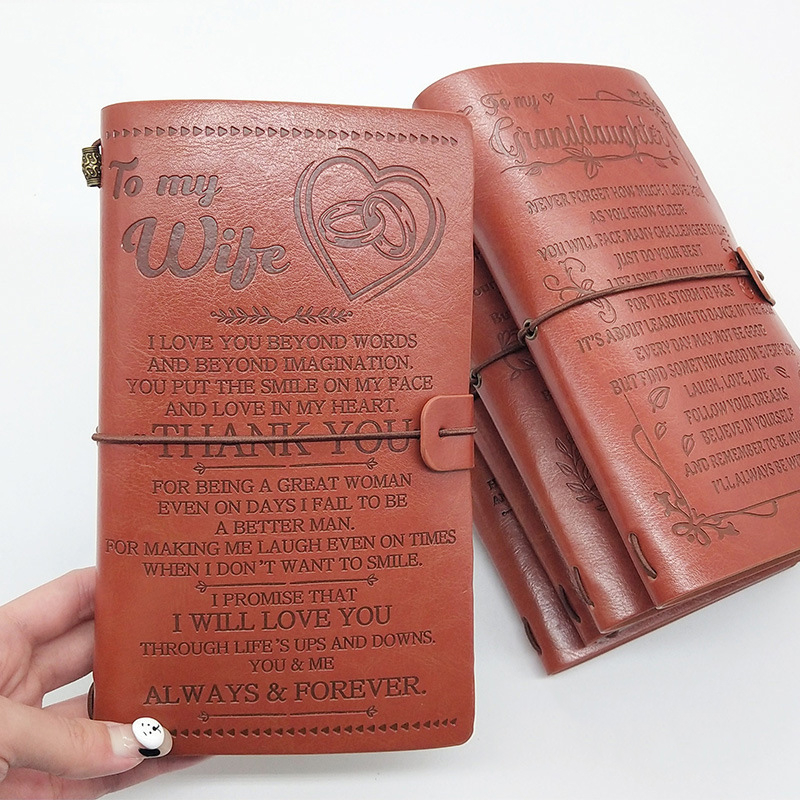 To my
Wife
I LOVE YOU BEYOND WORDS
AND BEYOND IMAGINATION.
YOU PUT THE SMILE ON MY FACE
AND LOVE IN MY HEART.
THANK YOU
FOR BEING A GREAT WOMAN
EVEN ON DAYS I FAIL TO BE
A BETTER MAN.
FOR MAKING ME LAUGH EVEN ON TIMES
WHEN I DON'T WANT TO SMILE.
I PROMISE THAT
I WILL LOVE YOU
THROUGH LIFE'S UPS AND DOWNS.
YOU & ME
ALWAYS & FOREVER.
To my
Granddaughter
NEVER FORGET HOW MUCH I LOVE YOU
AS YOU GROW OLDER
YOU WILL FACE MANY CHALLENGES
JUST DO YOUR BEST
LIFE ISN'T ABOUT WAITING
FOR THE STORM TO PASS
IT'S ABOUT LEARNING TO DANCE IN THE
EVERY DAY MAY NOT BE GOOD
BUT FIND SOMETHING GOOD IN EVERY
LAUGH, LOVE, LIVE
FOLLOW YOUR DREAMS
BELIEVE IN YOURSELF
AND REMEMBER TO BE
I'LL ALWAYS BE